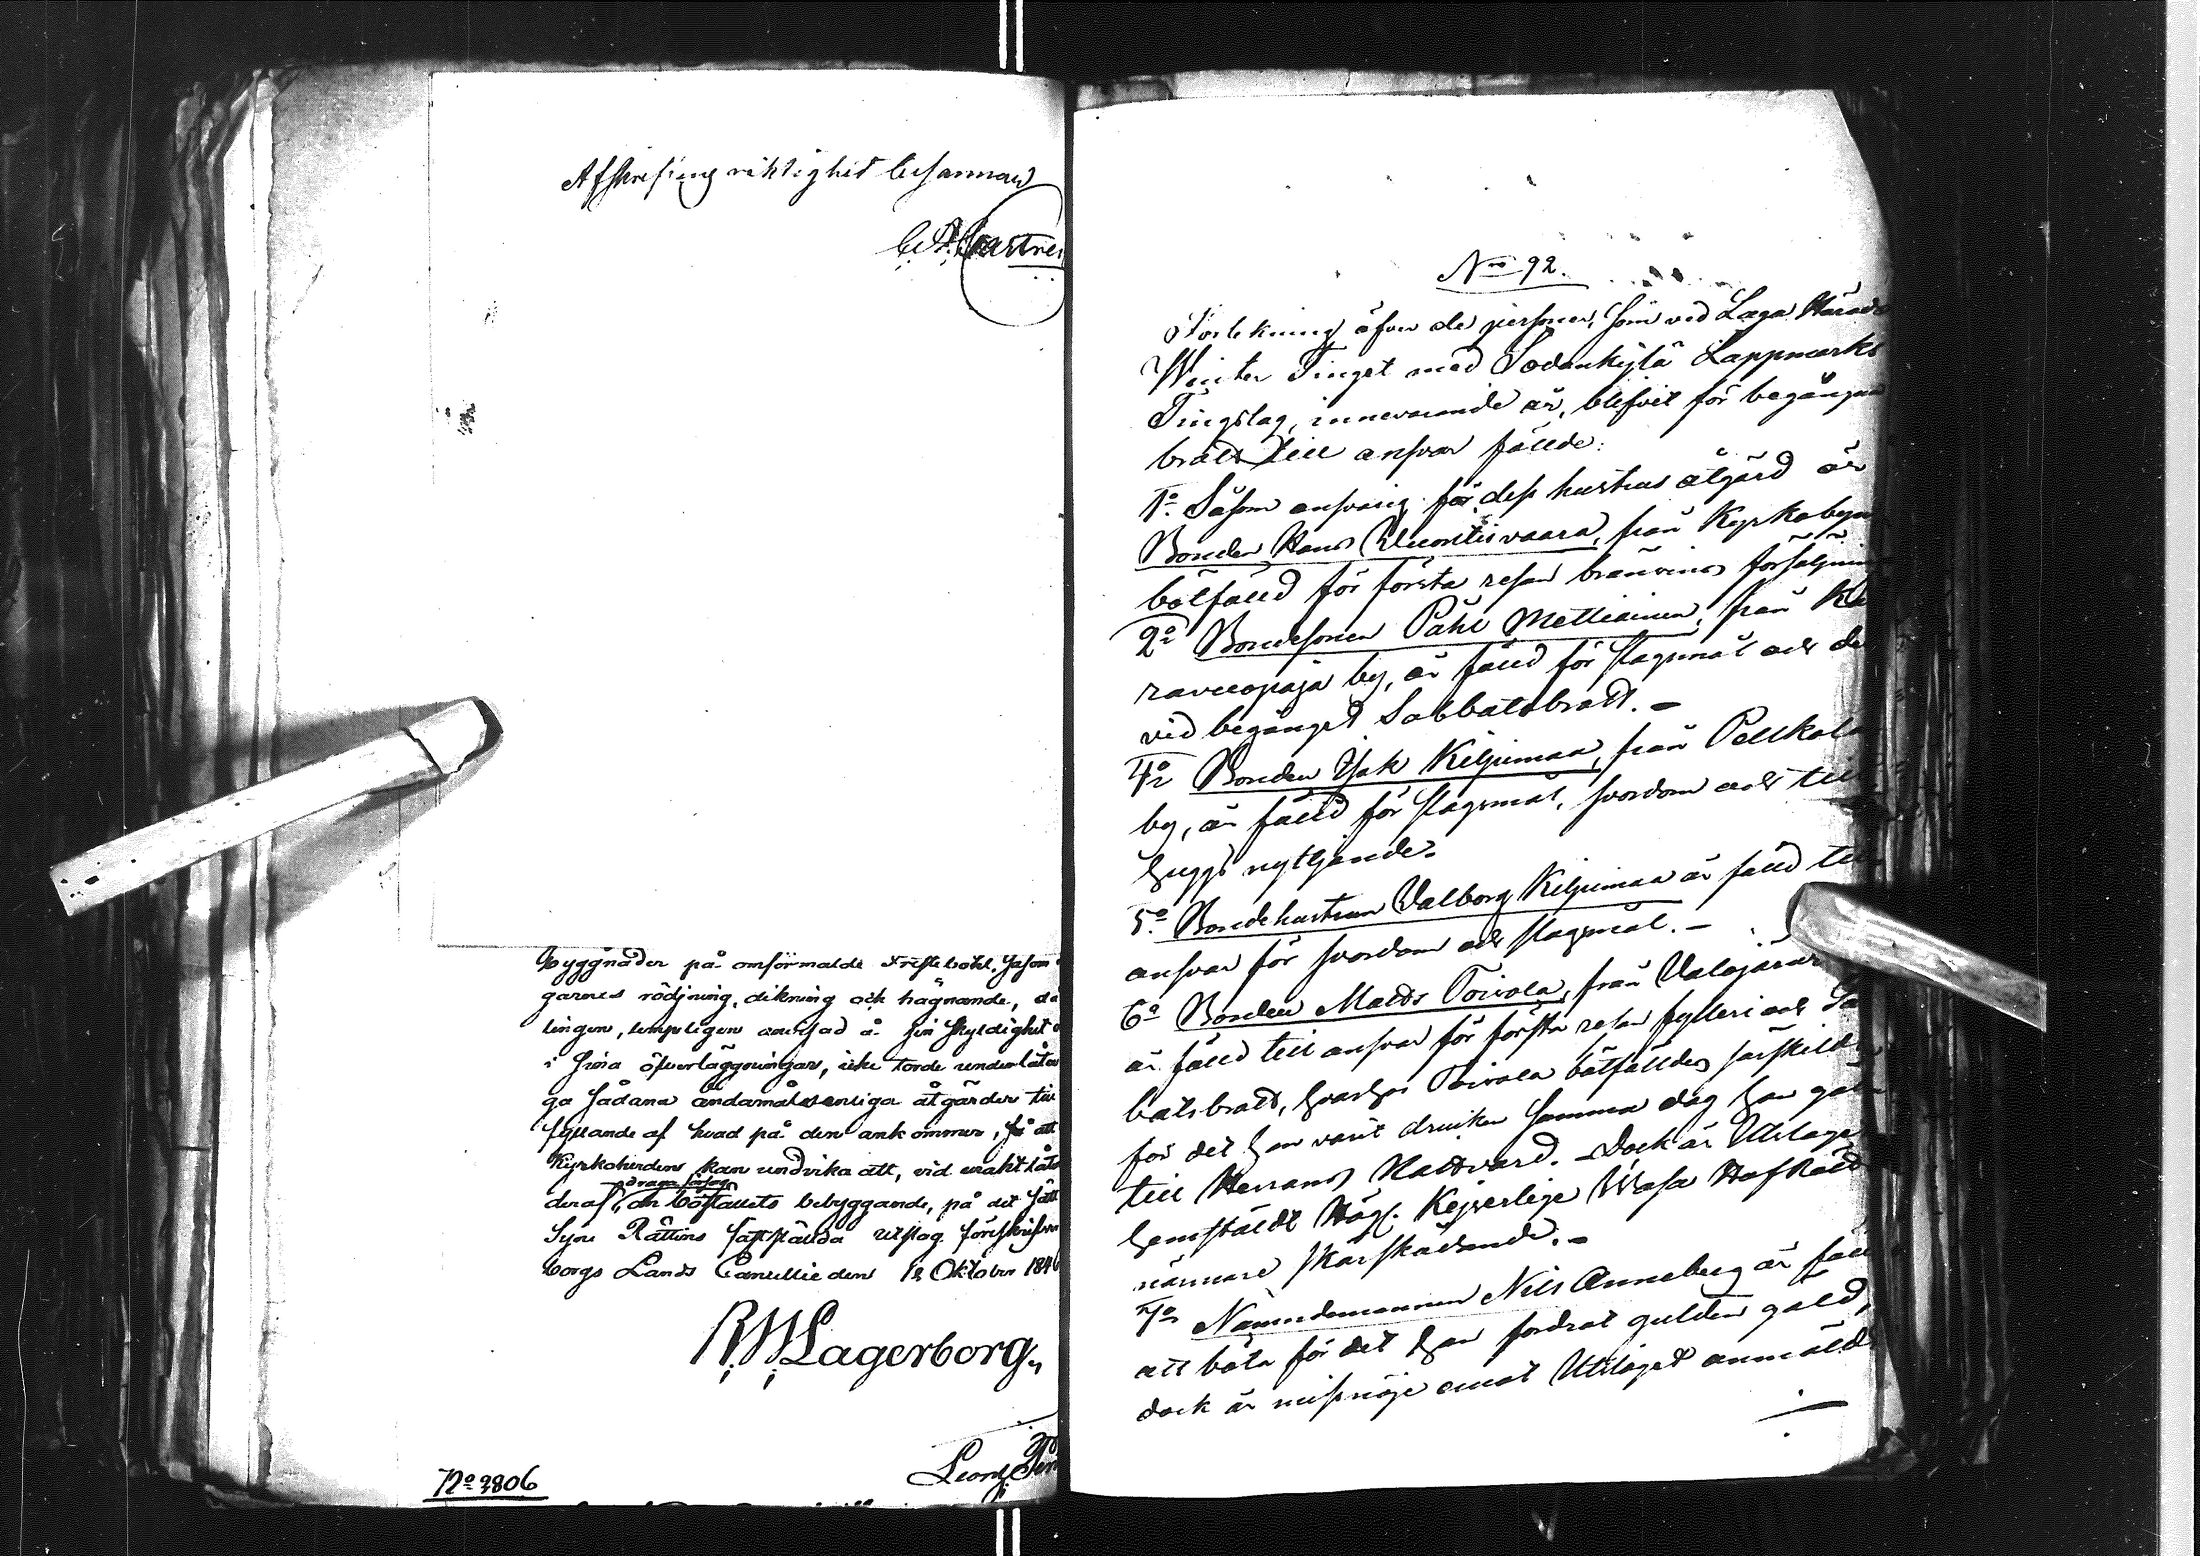 Afskrifning riktighet besannas
byggnader på omförmälde Prestebohl, såsom
garnes rödjning, dikning och hägnande, då
lingen, lempeligen anvisad å sin skyldighet
i sina öfverläggningar, icke torde underlåta
ga sådana ändamålsenliga åtgärder till
fyllande af hvad på den ankommer, så att
Kyrkoherden kan undvika att, vid uraktlåten
draga försorg
deraf, om boställets bebyggande, på det sätt
Syne Rättens fastställda utslag föreskrifver
borgs Lands Cancellie den 12 Oktober 1846
RWLagerborg
No 3806
No 92.
Förtekning öfver de personer, som vid Laga Härads
Winter Tinget med Sodankylä Lappmarks
Tingslag, innevarande år, blifvit för begångna
brott till ansvar fällde:
1o Såsom ansvarig för dess hustrus åtgärd är
Bonden Hans Vuontisvaara, från Kyrkobyn
bötfälld för första resan bränvins försäljning
2o Bondesonen Påhl Mettiäinen, från
by, är fälld för slagsmål och der
vid begånget Sabbatsbrott. –
4o Bonden Isak Kilpimaa, från Pelkola
by, är fälld för slagsmål, svordom och till
huggs nyttjande.
5o Bondehustrun Valborg Kilpimaa är fälld till
ansvar för svordom och slagsmål. –
6o Bonden Matts Toivola, från
är fälld till ansvar för första resan fylleri och Sab
batsbrott, hvarhos Toivola bötfälldes särskildt
för det han varit drucken samma dag han gått
till Herrans Nattvard. – Dock är Utslaget
hemstäldt Högl. Kejserlige Wasa HofRätt
närmare skärskådande. –
7o Nämndemannen Nils Anneberg är fälld
att böta för det han fordrat gulden gäld,
dock är missnöje emot Utslaget anmäldt